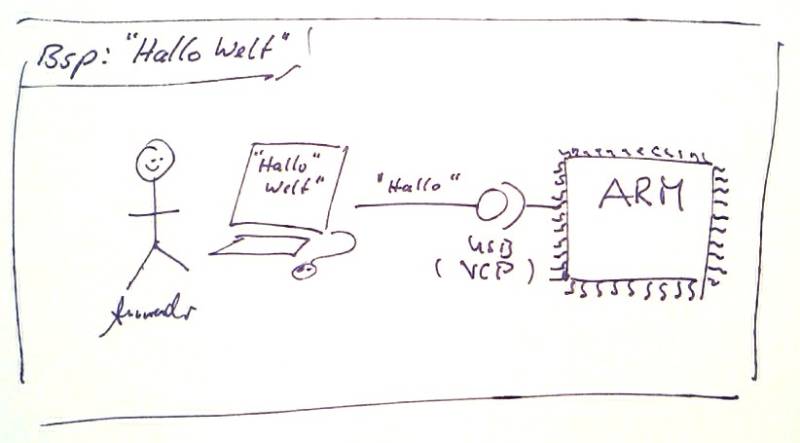 Bsp: "Hallo Welt"
"Hallo"
Welt"
"Hallo"
ARM
USB
( VCP )
Anwender